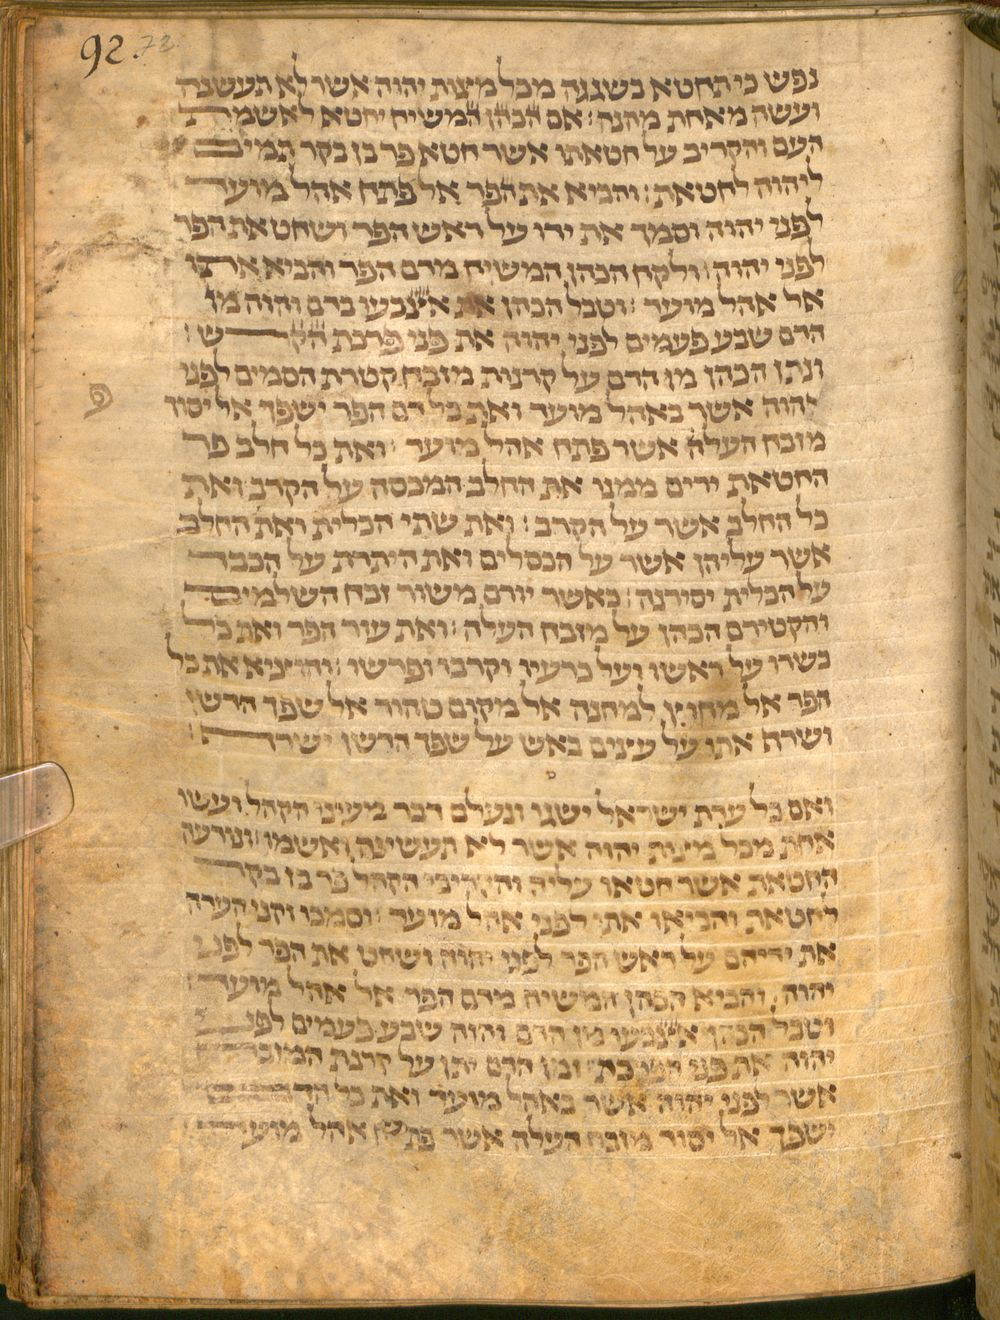 92. 72.
נפש כי תחטא בשגגה מכל מצות יהוה אשר לא תעשנה
ועשה מאחת מהנה : אם הכהן המשיח יחטא לאשמת
העם והקריב על חטאתו אשר חטא פר בן בקר תמים
ליהוה לחטאת : והביא את הפר אל פתח אהל מועד
לפני יהוה וסמך את ידו על ראש הפר ושחט את הפר
לפני יהוה : ולקח הכהן המשיח מדם הפר והביא אתו
אל אהל מועד : וטבל הכהן את אצבעו בדם והזה מן
הדם שבע פעמים לפני יהוה את פני פרכת הקדש :
ונתן הכהן מן הדם על קרנות מזבח קטרת הסמים לפני
יהוה אשר באהל מועד ואת כל דם הפר ישפך אל יסוד
מזבח העלה אשר פתח אהל מועד : ואת כל חלב פר
החטאת ירים ממנו את החלב המכסה על הקרב ואת
כל החלב אשר על הקרב : ואת שתי הכלית ואת החלב
אשר עליהן אשר על הכסלים ואת היתרת על הכבד
על הכלית יסירנה : כאשר יורם משור זבח השלמים
והקטירם הכהן על מזבח העלה : ואת עור הפר ואת כל
בשרו על ראשו ועל כרעיו וקרבו ופרשו : והוציא את כל
הפר אל מחוץ למחנה אל מקום טהור אל שפך הדשן
ושרף אתו על עצים באש על שפך הדשן ישרף :
ואם כל עדת ישראל ישגו ונעלם דבר מעיני הקהל ועשו
אחת מכל מצות יהוה אשר לא תעשינה ואשמו : ונודעה
החטאת אשר חטאו עליה והקריבו הקהל פר בן בקר
לחטאת והביאו אתו לפני אהל מועד : וסמכו זקני העדה
את ידיהם על ראש הפר לפני יהוה ושחט את הפר לפני
יהוה : והביא הכהן המשיח מדם הפר אל אהל מועד :
וטבל הכהן אצבעו מן הדם והזה שבע פעמים לפני
יהוה את פני הפרכת : ומן הדם יתן על קרנת המזבח
אשר לפני יהוה אשר באהל מועד ואת כל הדם
ישפך אל יסוד מזבח העלה אשר פתח אהל מועד